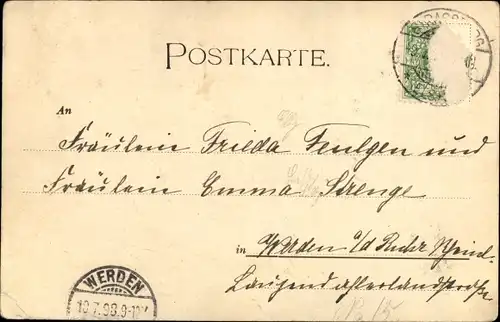 STRASSBURG
POSTKARTE.
An
Fräulein Frieda Feulgen und
Fräulein Emma Strenge
in Werden a/d Ruhr Rheinl.
WERDEN
10.7.99.9-10V